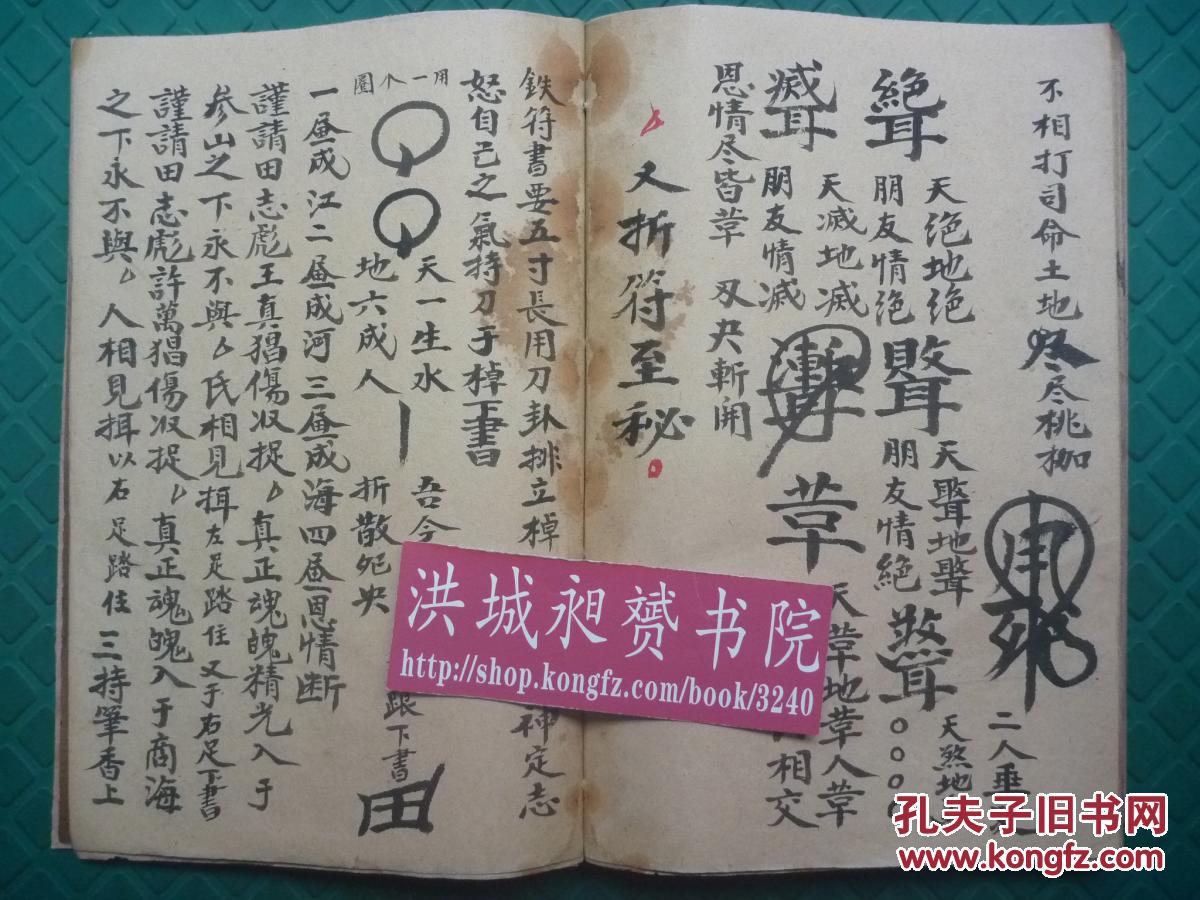 不相打司命土地 尽桃枷
二人垂
絕 天绝地绝
朋友情绝
天聻地聻
朋友情絕
天煞地
○○○○
天滅地滅
朋友情滅
草 天草地草人草
相交
恩情尽皆草 刄夬斬開
又折符至秘
鉄符書要五寸長用刀卦排立棹
神定志
怒自己之氣持刀于棹下書
用一个圈
天一生水
地六成人
吾今
折散死夬
跟下書
田
一畫成江二畫成河三畫成海四畫恩情断
謹請田志彪王真猖傷收捉 真正魂魄精光入于
參山之下永不與 氏相見揖左足踏住又于右足下書
謹請田志彪許萬猖傷收捉 真正魂魄入于商海
之下永不與 人相見揖以右足踏住三持筆香上
洪城昶赟书院
http://shop.kongfz.com/book/3240
孔夫子旧书网
www.kongfz.com